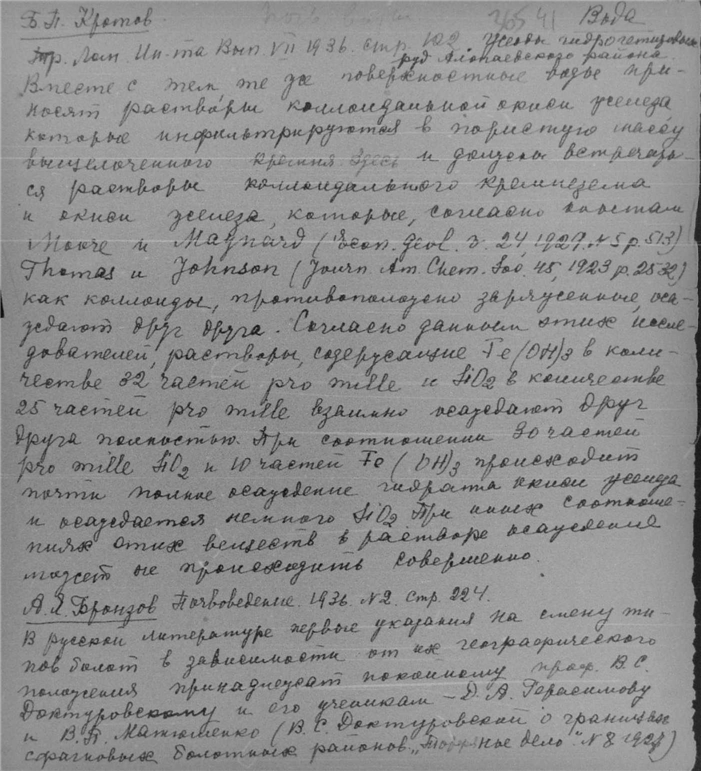 Б.П. Кротов. 365 41 Вода
Тр. Лом. Ин-та Вып. VII 1936. стр. 122 Жеоды гидрогетитовых
руд Алапаевского района.
Вместе с тем те же поверхностные воды при-
носят растворы коллоидальной окиси железа
которые инфильтрируются в пористую массу
выщелоченного кремня Здесь и должны встречать-
ся растворы коллоидального кремнезема
и окиси железа, которые, согласно опытам
Moore и Maynard (Econ. Geol. v. 24, 1929. N 5 p. 513)
Thomas и Johnson (Journ. Am. Chem. Soc. 45, 1923 p. 2532)
как коллоиды, противоположно заряженные, оса-
ждают друг друга. Согласно данным этих иссле-
дователей, растворы, содержащие Fe(OH)3 в коли-
честве 32 частей pro mille и SiO2 в количестве
25 частей pro mille взаимно осаждают друг
друга полностью. При соотношении 30 частей
pro mille SiO2 и 10 частей Fe(OH)3 происходит
почти полное осаждение гидрата окиси железа
и осаждается немного SiO2 При иных соотноше-
ниях этих веществ в растворе осаждения
может не происходить совершенно.
А.Я. Бронзов Почвоведение. 1936. N 2. стр. 224.
В русской литературе первые указания на смену ти-
пов болот в зависимости от их географического
положения принадлежат покойному проф. В.С.
Доктуровскому и его ученикам – Д.А. Герасимову
и В.П. Матюшенко (В.С. Доктуровский о границах
сфагновых болотных районов „Торфяное дело" N 8